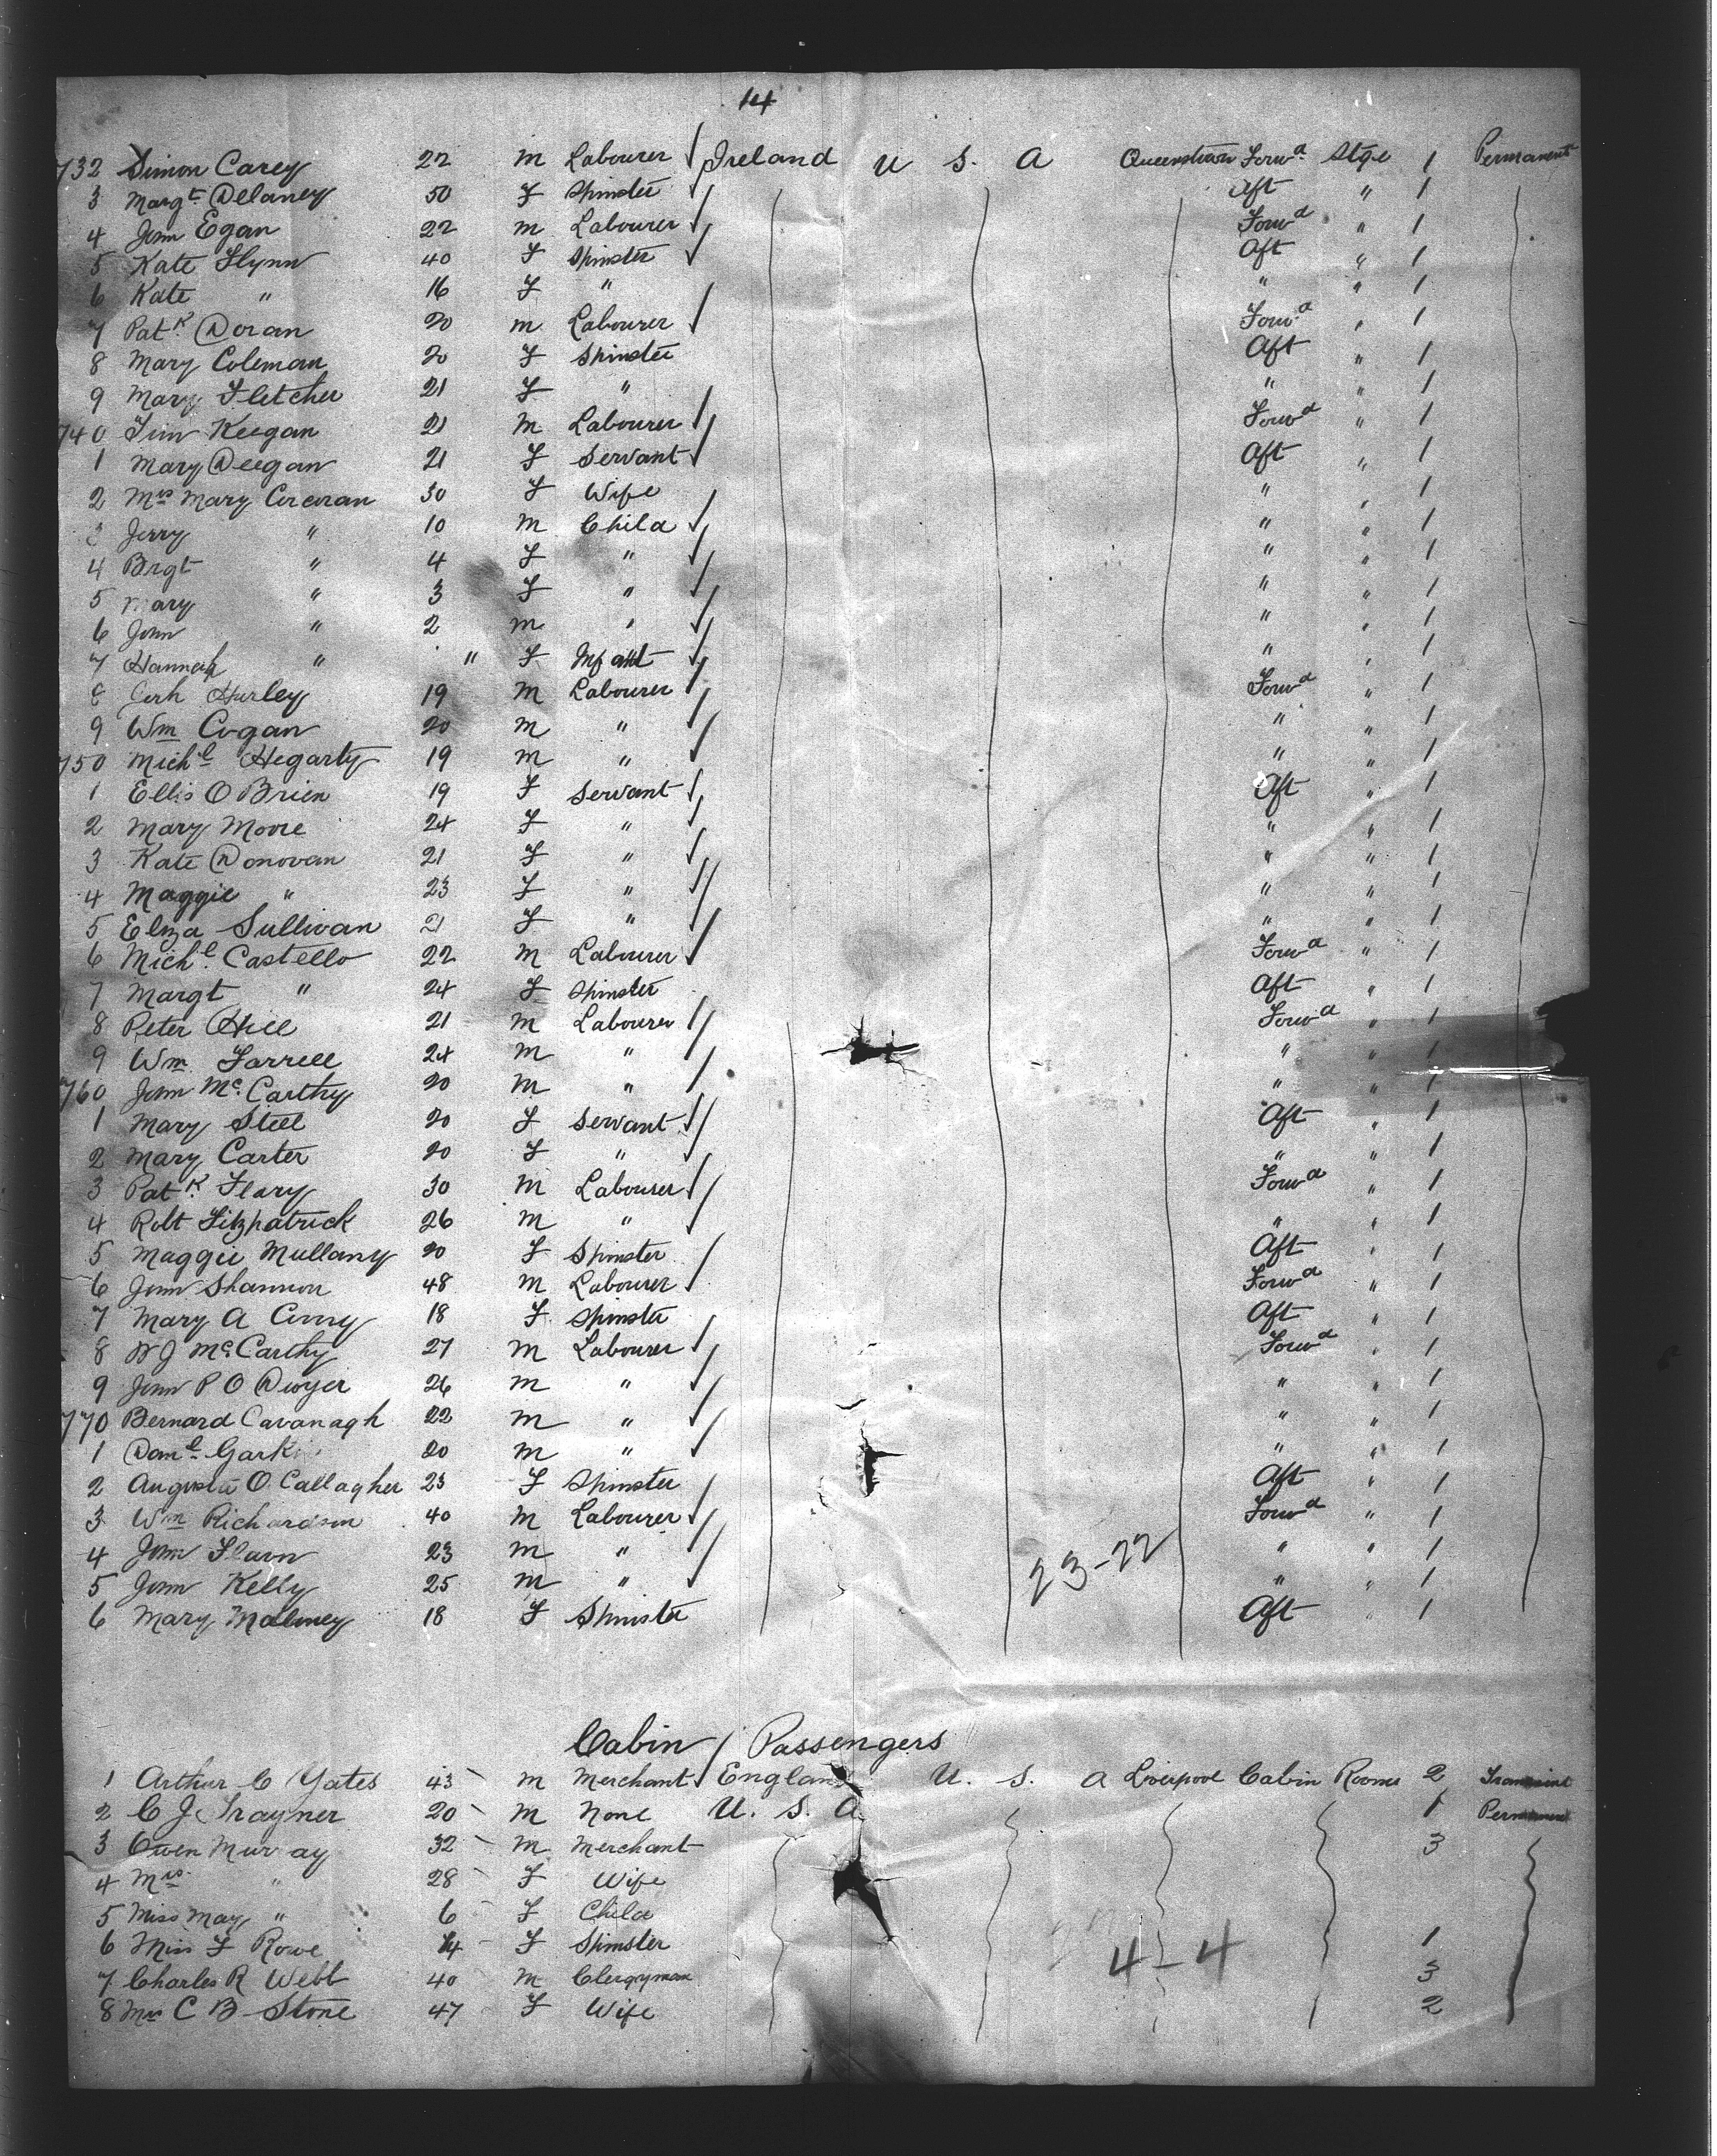 14
732 Simon Carey 22 m Labourer Ireland U S. A Queenstown Forwd Stge 1 Permanent
3 Margt Delaney 50 F Spinster Aft " 1
4 John Egan 22 m Labourer Forwd " 1
5 Kate Flynn 40 F Spinster Aft " 1
6 Kate " 16 F " " " 1
7 Patk Doran 20 m Labourer Forwd " 1
8 Mary Coleman 20 F Spinster Aft " 1
9 Mary Fletcher 21 F " " " 1
740 Tim Keegan 21 M Labourer Forwd " 1
1 Mary Deegan 21 F Servant Aft " 1
2 Mrs Mary Corcoran 30 F Wife " " 1
3 Jerry " 10 M Child " " 1
4 Brgt " 4 F " " " 1
5 Mary " 3 F " " " 1
6 John " 2 m " " " 1
7 Hannah " " F Infant " " 1
8 Hurley 19 M Labourer Forwd " 1
9 Wm Cogan 20 m " " " 1
750 Michl Hegarty 19 m " " " 1
1 Ellis O Brien 19 F Servant Aft " 1
2 Mary Moore 24 F " " " 1
3 Kate Donovan 21 F " " " 1
4 Maggie " 23 F " " " 1
5 Eliza Sullivan 21 F " " " 1
6 Michl. Castello 22 M Labourer Forwd " 1
7 Margt " 24 F Spinster Aft " 1
8 Peter Hill 21 m Labourer Forwd " 1
9 Wm Farrell 24 m " " " 1
760 John McCarthy 20 m " " " 1
1 Mary Steel 20 F Servant Aft " 1
2 Mary Carter 20 F " " " 1
3 Patk. Flary 30 M Labourer Forwd " 1
4 Robt Fitzpatrick 26 m " " " 1
5 Maggie Mullany 20 F Spinster Aft " 1
6 John Shannon 48 M Labourer Forwd " 1
7 Mary A 18 F Spinster Aft " 1
8 W J McCarthy 27 M Labourer Forwd " 1
9 John P O Dwyer 26 m " " " 1
770 Bernard Cavanagh 22 m " " " 1
1 Danl 20 m " " " 1
2 Augusta O Callagher 23 F Spinster Aft " 1
3 Wm Richardson 40 M Labourer Forwd " 1
4 John Flavn 23 m " " " 1
5 John Kelly 25 m " 23-22 " " 1
6 Mary Maloney 18 F Spinster Aft " 1
Cabin Passengers
1 Arthur C Yates 43 m Merchant England U. S. A Liverpool Cabin Rooms 2 Transient
2 C J Trayner 20 M None U. S. A 1 Permanent
3 Owen Murray 32 M Merchant 3
4 Mrs " 28 F Wife
5 Miss May " 6 F Child
6 Miss F Rowe 14 F Spinster 4-4 1
7 Charles R Webb 40 M Clergyman 3
8 Mrs C B Stone 47 F Wife 2